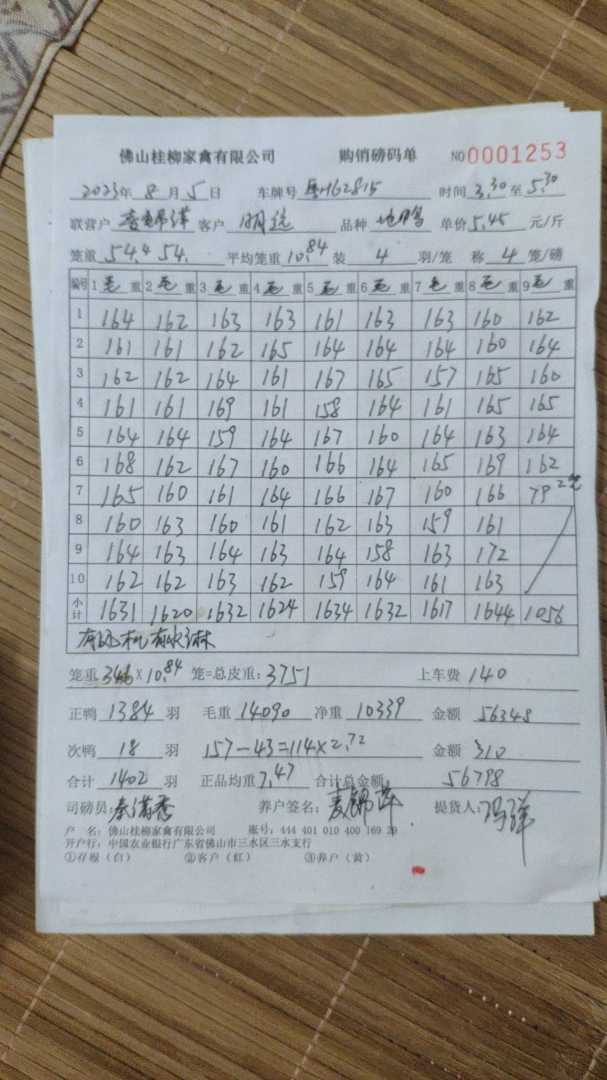 佛山桂柳家禽有限公司 购销磅码单 NO 0001253
2023年 8 月 5 日 车牌号 H62815 时间 3.30 至 5.30
联营户 客户 明 品种 地鸭 单价 5.45 元/斤
笼重 54.4 54. 平均笼重 10.84 装 4 羽/笼 称 4 笼/磅
编号 1 毛 重 2 毛 重 3 毛 重 4 毛 重 5 毛 重 6 毛 重 7 毛 重 8 毛 重 9 毛 重
1 164 162 163 163 161 163 163 160 162
2 161 161 162 165 164 164 164 160 164
3 162 162 164 161 167 165 157 165 160
4 161 161 169 161 158 164 161 165 165
5 164 164 159 164 167 160 164 163 164
6 168 162 167 160 166 164 165 169 162
7 165 160 161 164 166 167 160 166 79 2笼
8 160 163 160 161 162 163 159 161
9 164 163 164 163 164 158 163 172
10 162 162 163 162 159 164 161 163
小计 1631 1620 1632 1624 1634 1632 1617 1644 1056
笼重 346 × 10.84 笼=总皮重: 3751 上车费 140
正鸭 1384 羽 毛重 14090 净重 10339 金额 56348
次鸭 18 羽 157-43=114×2.72 金额 310
合计 1402 羽 正品均重 7.47 合计总金额: 56798
司磅员: 养户签名: 麦锦 提货人:
户 名: 佛山桂柳家禽有限公司 账号: 444 401 010 400 169 20
开户行: 中国农业银行广东省佛山市三水区三水支行
①存根(白) ②客户(红) ③养户(黄)